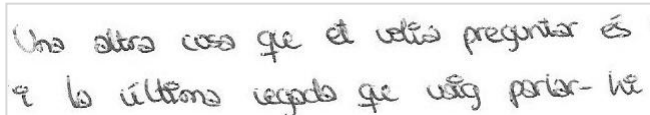 Una altra cosa que et volia preguntar és
i la última vegada que vaig parlar-hi